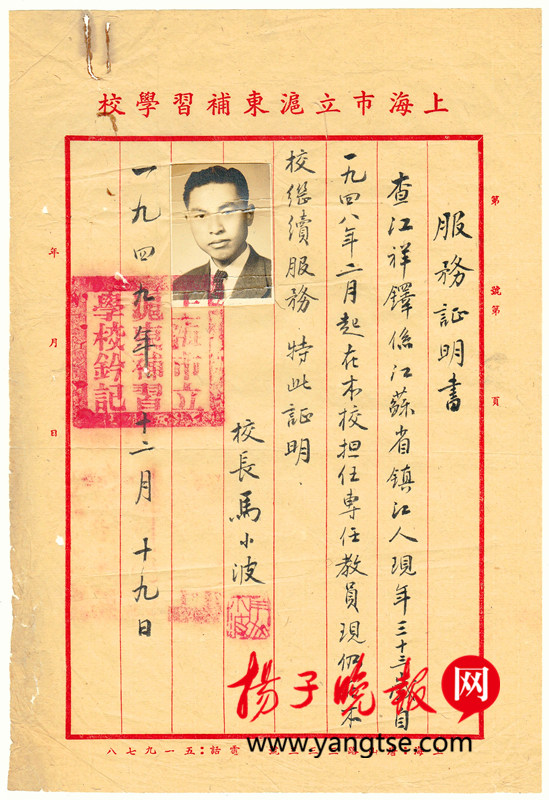 上海市立滬東補習學校
服務証明書
查江祥鐸係江蘇省鎮江人現年三十三歲自
一九四八年二月起在本校担任專任教員現仍在本
校繼續服務特此証明
校長馬小波
一九四九年十二月十九日
上海市立
滬東補習
學校鈐記
第 號第 頁
年 月 日
電話：五一九七八
揚子晚報网
www.yangtse.com